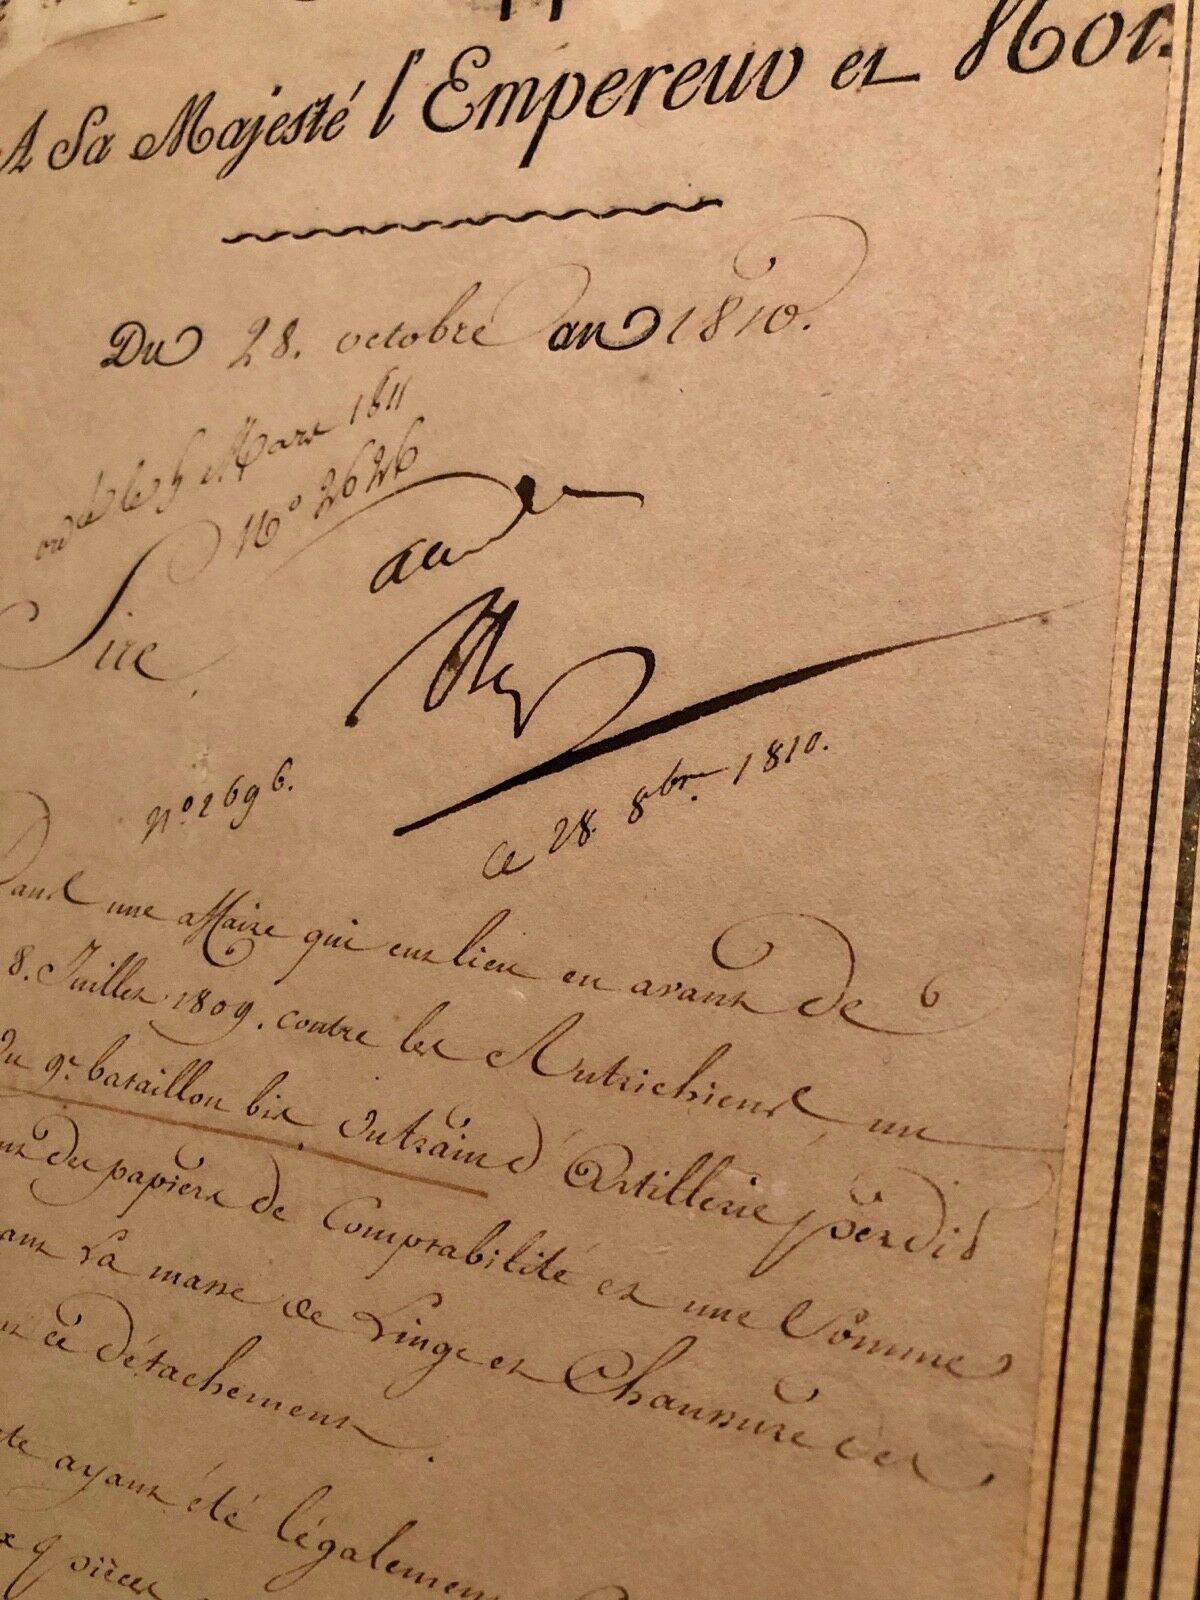 A Sa Majesté l'Empereur et Roi.
Du 28. octobre an 1810.
le 5 Mars 1811
N° 2626
Sire,
n° 2696.
ce 28. 8bre. 1810.
Dans une affaire qui eut lieu en avant de
8. Juillet 1809. contre les Autrichiens un
du 9e. bataillon bis du train d'Artillerie perdit
des papiers de Comptabilité et une Somme
La masse de Linge et Chaussure des
ce détachement.
ayant été légalement
pièces